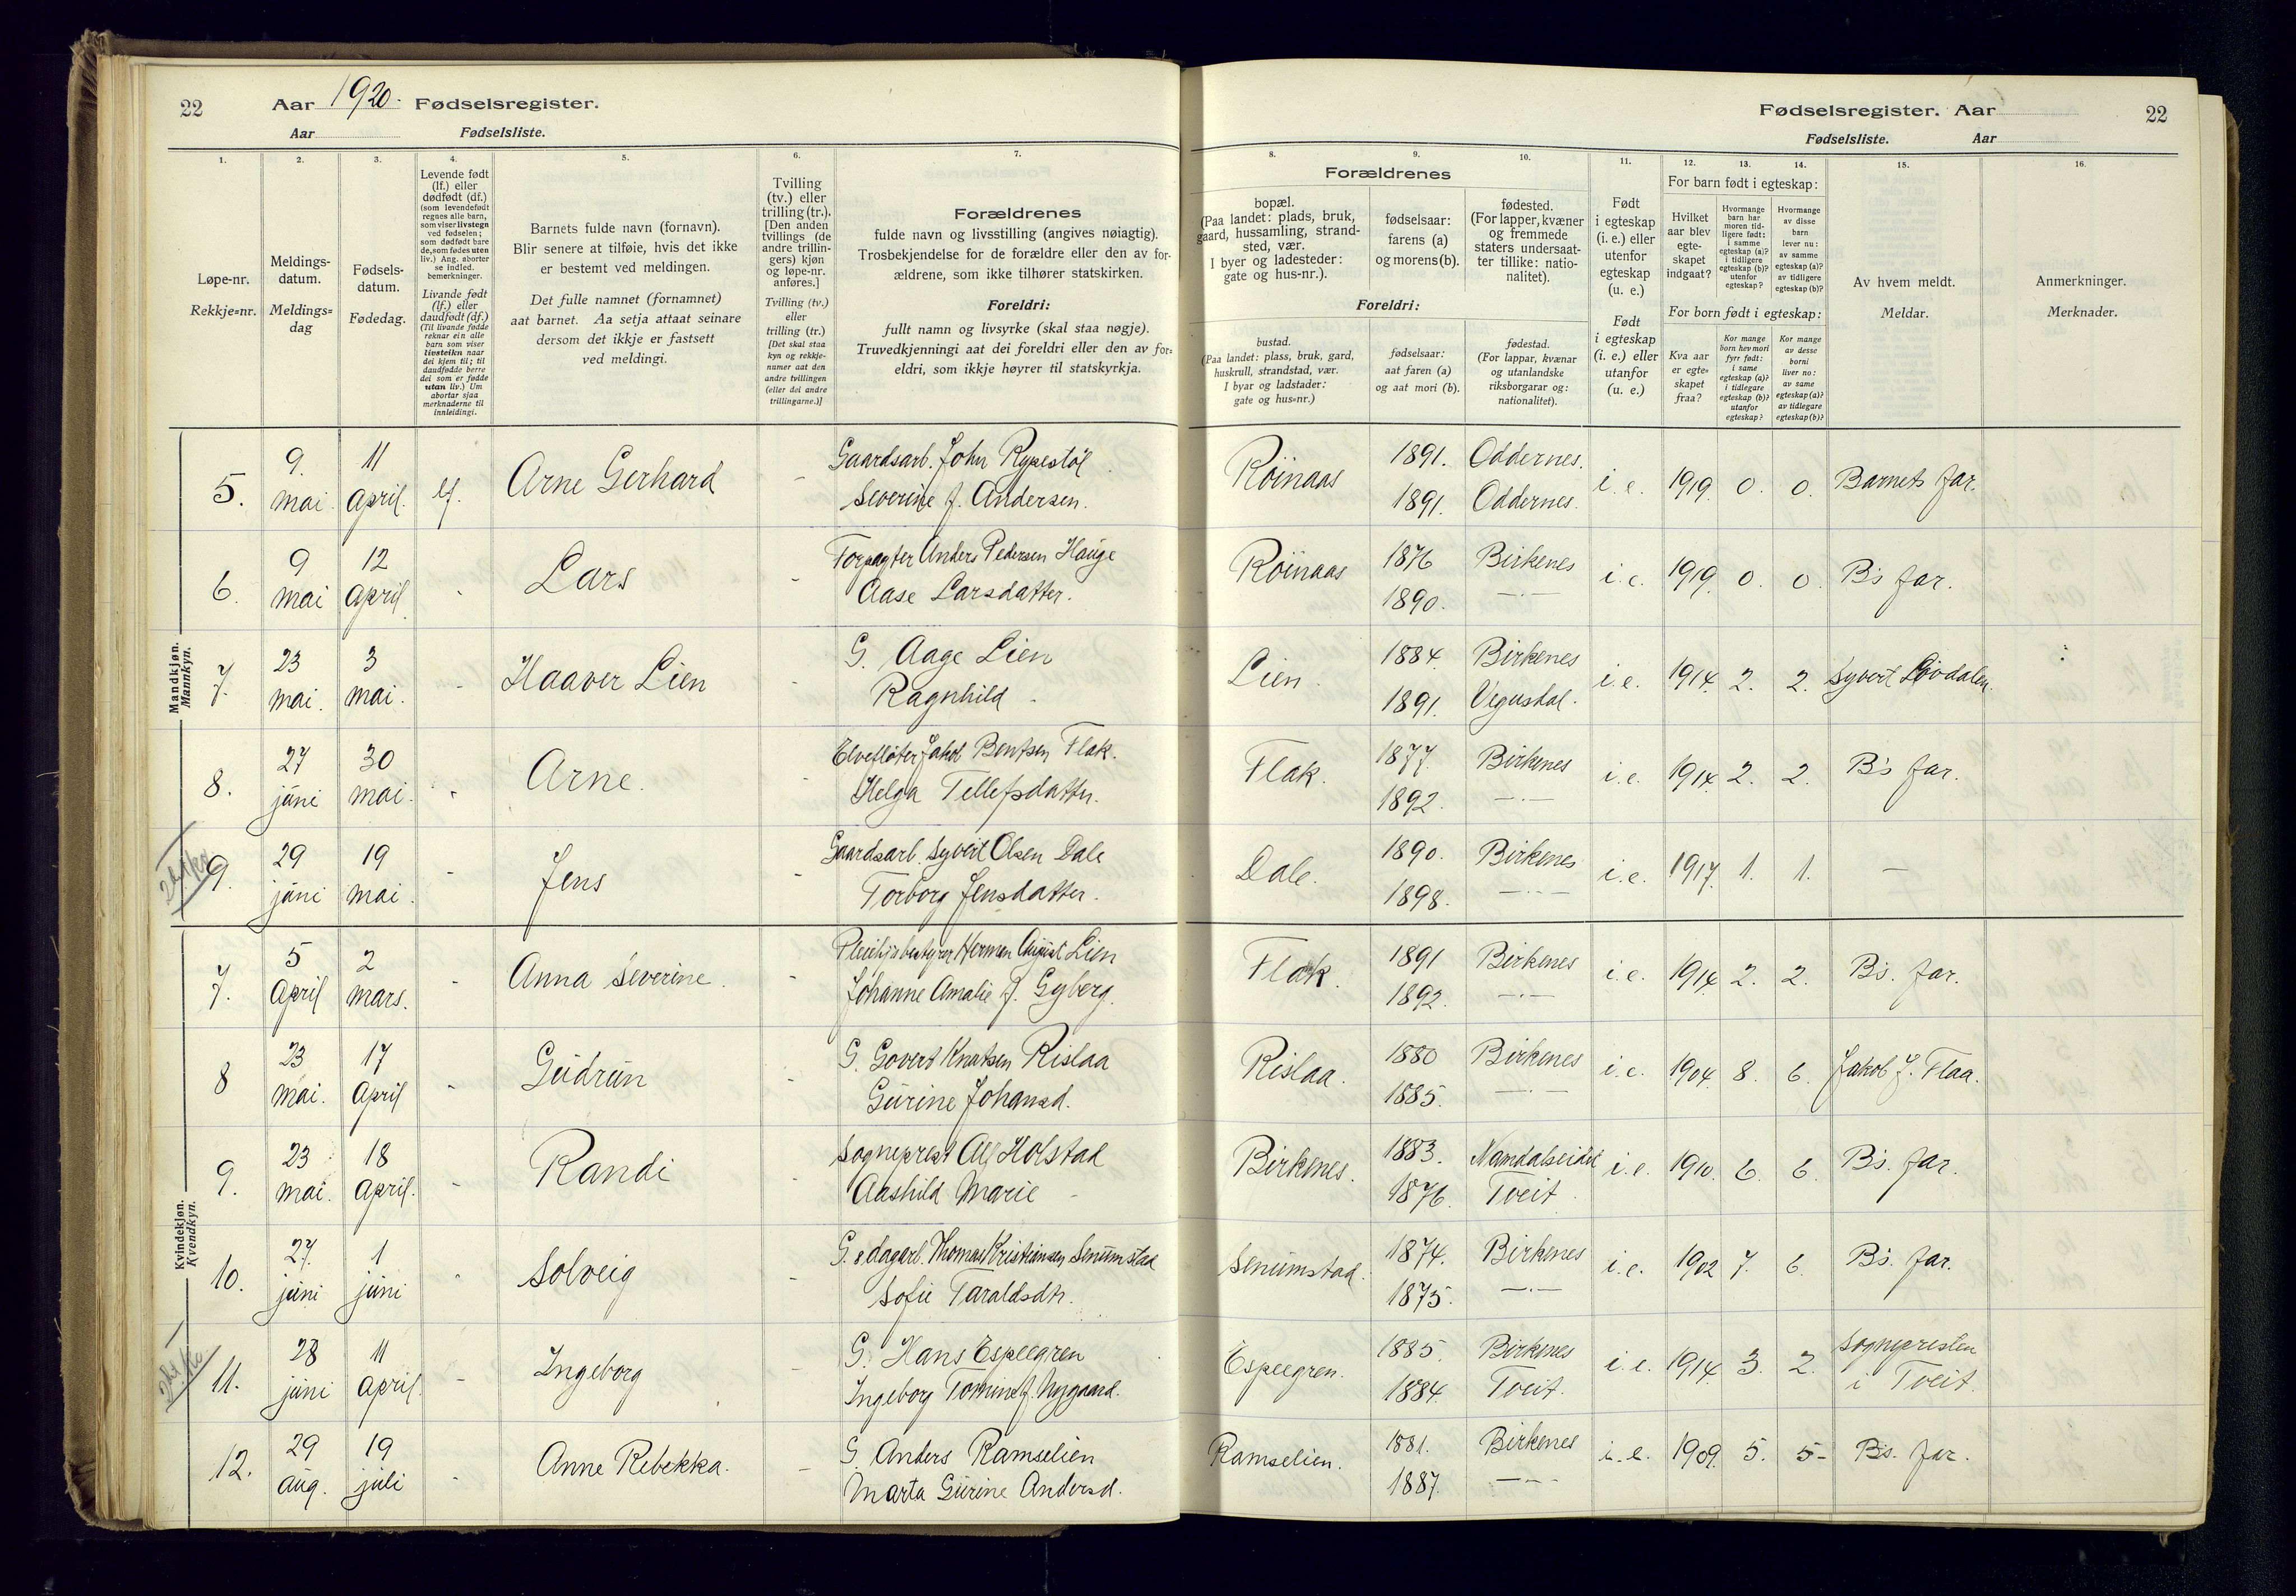 22 Aar 1920. Fødselsregister.
Aar Fødselsliste.
Fødselsregister. Aar 22
Fødselsliste. Aar
1.
Løpe-nr.
Rekkje=nr.
2.
Meldings-
datum.
Meldings=
dag
3.
Fødsels-
datum.
Fødedag.
4.
Levende født
(lf.) eller
dødfødt (df.)
(som levendefødt
regnes alle barn,
som viser livstegn
ved fødselen;
som dødfødt bare
de, som fødes uten
liv.) Ang. aborter
se indled.
bemerkninger.
Livande født
(lf.) eller
daudfødt (df.)
(Til livande fødde
reknar ein alle
barn som viser
livsteikn naar
dei kjem til; til
daudfødde berre
dei som er fødde
utan liv.) Um
abortar sjaa
merknaderne til
innleidingi.
5.
Barnets fulde navn (fornavn).
Blir senere at tilføie, hvis det ikke
er bestemt ved meldingen.
Det fulle namnet (fornamnet)
aat barnet. Aa setja attaat seinare
dersom det ikkje er fastsett
ved meldingi.
6.
Tvilling
(tv.) eller
trilling (tr.).
[Den anden
tvillings (de
andre trillin-
gers) kjøn
og løpe-nr.
anføres.]
Tvilling (tv.)
eller
trilling (tr.)
[Det skal staa
kyn og rekkje-
numer aat den
andre tvillingen
(eller dei andre
trillingarne.)]
7.
Forældrenes
fulde navn og livsstilling (angives nøiagtig).
Trosbekjendelse for de forældre eller den av for-
ældrene, som ikke tilhører statskirken.
Foreldri:
fullt namn og livsyrke (skal staa nøgje).
Truvedkjenningi aat dei foreldri eller den av for=
eldri, som ikkje høyrer til statskyrkja.
Forældrenes
8.
bopæl.
(Paa landet: plads, bruk,
gaard, hussamling, strand-
sted, vær.
I byer og ladesteder:
gate og hus-nr.).
9.
fødselsaar:
farens (a)
og morens (b).
10.
fødested.
(For lapper, kvæner
og fremmede
staters undersaat-
ter tillike: natio-
nalitet).
Foreldri:
bustad.
(Paa landet: plass, bruk, gard,
huskrull, strandstad, vær.
I byar og ladstader:
gate og hus=nr.)
fødselsaar:
aat faren (a)
og aat mori (b).
fødestad.
(For lappar, kvænar
og utanlandske
riksborgarar og:
nationalitet).
11.
Født
i egteskap
(i. e.) eller
utenfor
egteskap
(u. e.)
Født
i egteskap
(i. e.) eller
utanfor
(u. e.)
12. 13. 14.
For barn født i egteskap:
Hvilket
aar blev
egte-
skapet
indgaat?
Hvormange
barn har
moren tid-
ligere født:
i samme
egteskap (a)?
i tidligere
egteskap (b)?
utenfor
egteskap?
Hvormange
av disse
barn
lever nu:
av samme
egteskap (a)?
av tidligere
egteskap (b)?
For born født i egteskap:
Kva aar
er egte-
skapet
fraa?
Kor mange
born hev mori
fyrr født:
i same
egteskap (a)?
i tidlegare
egteskap (b)?
utanfor
egteskap?
Kor mange
av desse
borni
liver no:
av same
egteskap (a)?
av tidlegare
egteskap (b)?
15.
Av hvem meldt.
Meldar.
16.
Anmerkninger.
Merknader.
Mandkjøn.
Mannkyn.
5. 9. mai. 11 April. lf. Arne Gerhard - Gaardsarb. John Rypestøl
Severine f. Andersen. Röinaas 1891. 1891. Oddernes. Oddernes. i.e. 1919. 0. 0. Barnets far.
6. 9 mai 12 April Lars - Forpagter Anders Pedersen Hauge
Aase Larsdatter. Röinaas 1876 1890. Birkenes —·— i.e. 1919. 0. 0. B's far.
7. 23 mai. 3 mai. - Haaver Lien - G. Aage Lien
Ragnhild - Lien. 1884. 1891. Birkenes Vegusdal. i.e. 1914. 2. 2. Syvert Lövdalen.
8. 27 juni 30 mai. Arne. - Elvefløter Jakob Bentsen Flak.
Helga Tellefsdatter. Flak. 1877. 1892. Birkenes —·— i.e. 1914. 2. 2. B's far.
9. 29 juni 19 mai. - Jens - Gaardsarb. Syvert Olsen Dale
Torborg Jensdatter. Dale. 1890. 1898. Birkenes —·— i.e. 1917. 1. 1. —
Kvindekjøn.
Kvendkyn.
7. 5 April 2 mars. - Anna Severine. - Herman August Lien
Johanne Amalie f. Gyberg. Flak. 1891 1892. Birkenes —·— i.e. 1914. 2. 2. B's. far.
8 23 mai. 17 April - Gudrun - G. Govert Knutsen Rislaa
Gurine Johansd. Rislaa. 1880 1885. Birkenes —·— i.e. 1904. 8. 6. Jakob J. Flaa.
9. 23 mai. 18 April. - Randi - Sogneprest Alf Holstad
Aashild Marie - Birkenes. 1883. 1876. Namdalseidet Tveit. i.e. 1910. 6. 6. B's. far.
10. 27. juni 1 juni - Solveig - G. & dagarb. Thomas Kristiansen Senumstad
Sofie Taraldsdtr. Senumstad. 1874. 1875. Birkenes —·— i.e. 1902 7. 6. B's. far.
11. 28 juni 11 April. - Ingeborg - G. Hans Espegren
Ingeborg Tomine f. Nygaard. Espegren. 1885. 1884. Birkenes Tveit. i.e. 1914. 3. 2. Sognepresten
i Tveit.
12. 29 aug. 19 juli - Anne Rebekka. - G. Anders Ramselien
Marta Gurine Andersd. Ramselien. 1881. 1887. Birkenes —·— i.e. 1909. 5. 5- B's. far.